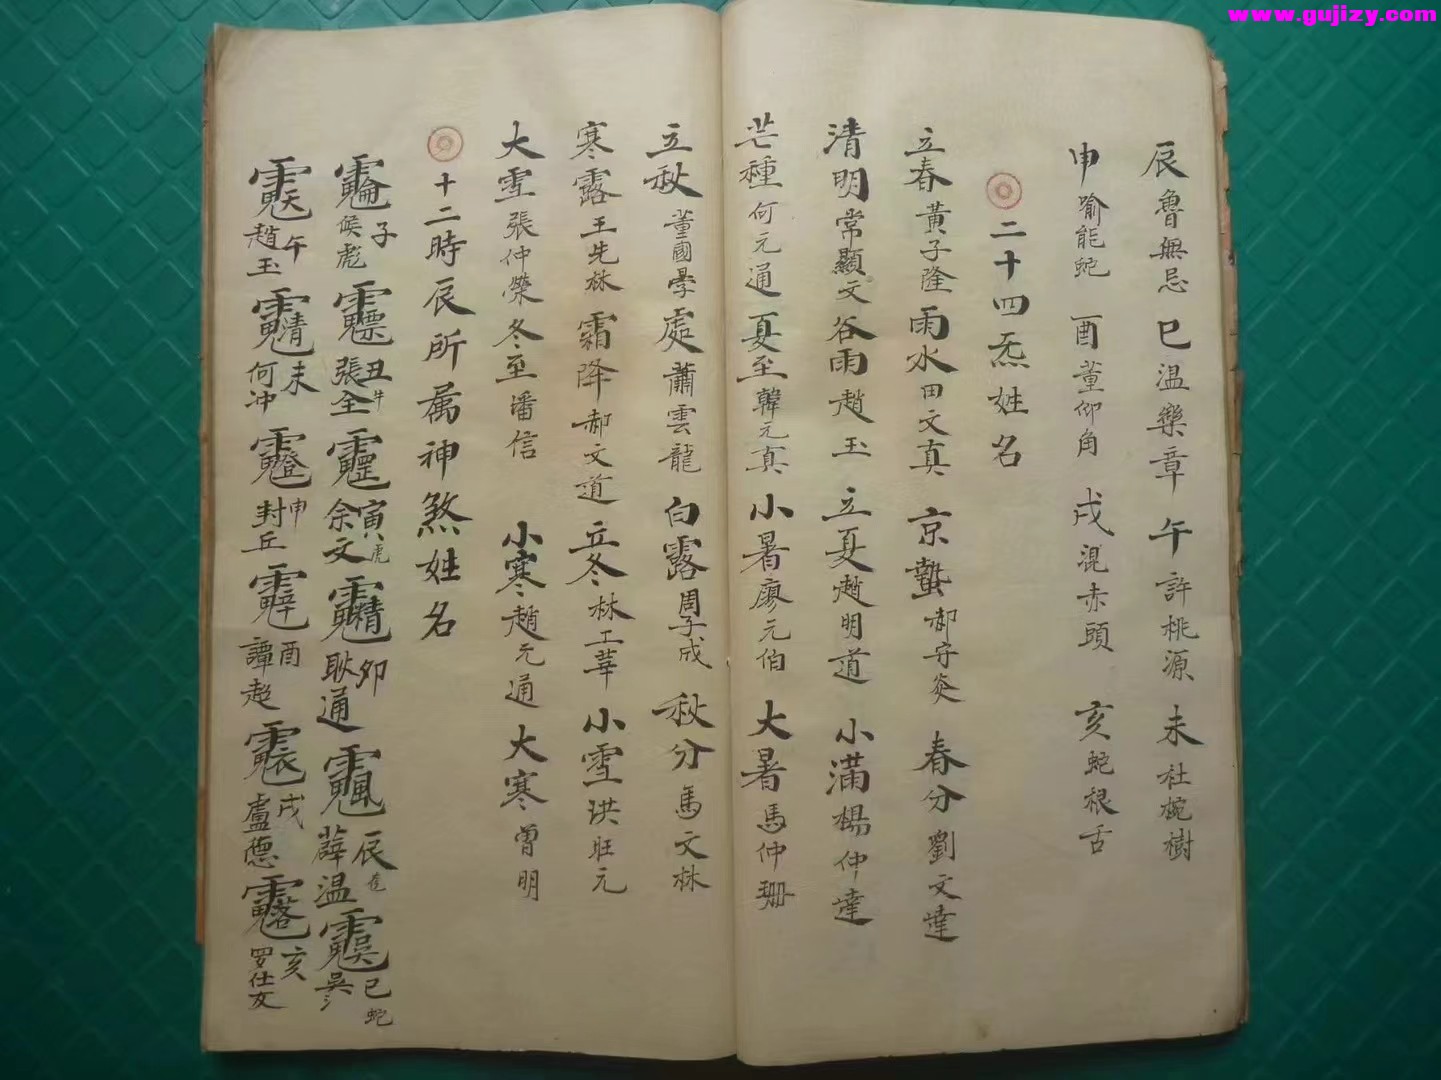 www.gujizy.com
辰魯無忌 巳温樂章 午許桃源 未社椀樹
申喻能蛇 酉董仰角 戌混赤頭 亥蛇根舌
二十四炁姓名
立春黃子隆雨水田文真 京蟄郝守炎 春分劉文達
清明常顯文谷雨趙玉 立夏趙明道 小滿楊仲達
芒種何元通夏至韓元真小暑廖元伯大暑馬仲珊
立秋董國學處蕭雲龍白露周子成秋分馬文林
寒露王先林霜降郝文道立冬林工華小雪洪旺元
大雪張仲榮冬至潘信 小寒趙元通大寒曾明
十二時辰所属神煞姓名
子候彪 丑牛張全 寅虎余文 卯耿通 辰薛温 巳蛇吳
午趙玉 未何冲 申封丘 酉譚超 戌盧德 亥罗仕友